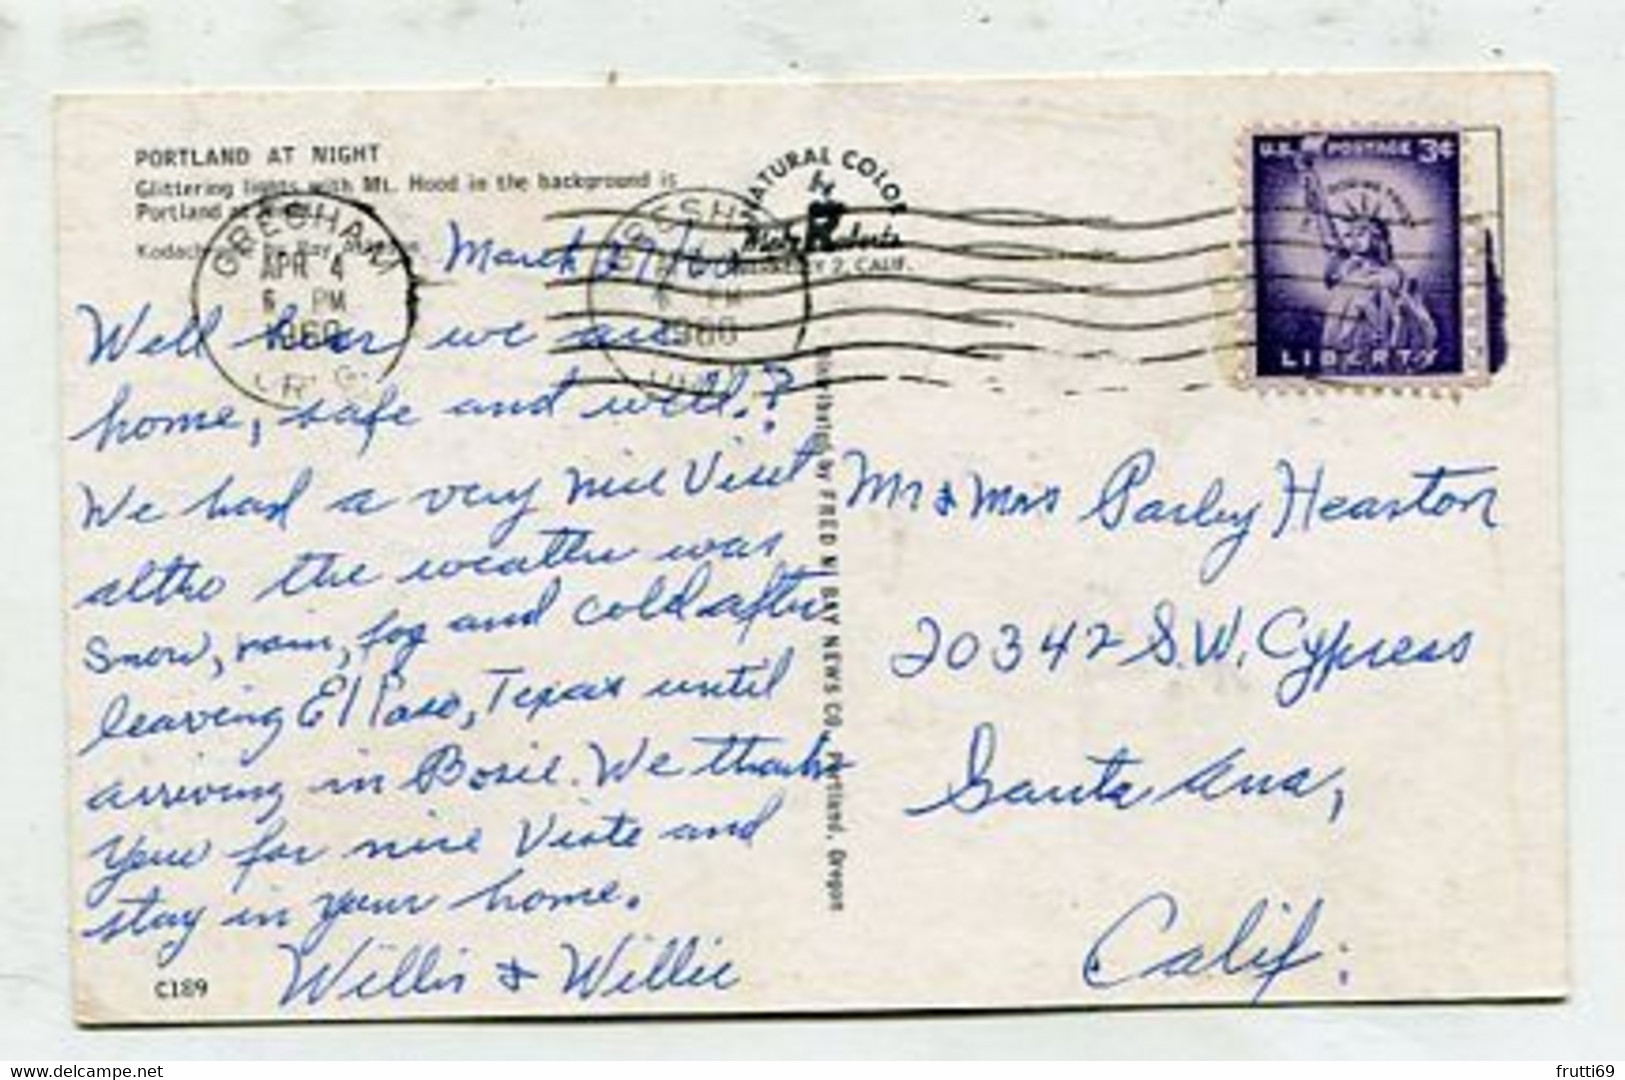 PORTLAND AT NIGHT
Glittering lights with Mt. Hood in the background is
Portland at
by Ray
NATURAL COLOR
by
Mike Roberts
BERKELEY 2, CALIF.
GRESHAM
APR 4
6 PM
1960
OREG.
1960
U.S. POSTAGE 3¢
IN GOD WE TRUST
LIBERTY
March 29/60
Well hear we are
home, safe and well.?
We had a very nice Visit
altho the weather was
Snow, rain, fog and cold after
leaving El Paso, Texas until
arriving in Bosie. We thank
you for nice Visite and
stay in your home.
Willis & Willie
C189
Distributed by FRED N. BAY NEWS CO., Portland, Oregon
Mr & Mrs Parley Hearton
20342 S.W. Cypress
Santa Ana,
Calif:
frutti69